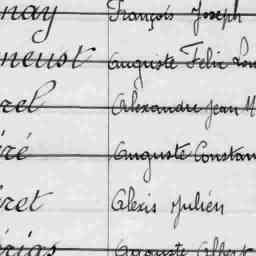 nay François Joseph
neust Auguste Felix Lou
rel Alexandre Jean M
iré Auguste Constan
iret Alexis Julien
érias Auguste Albert